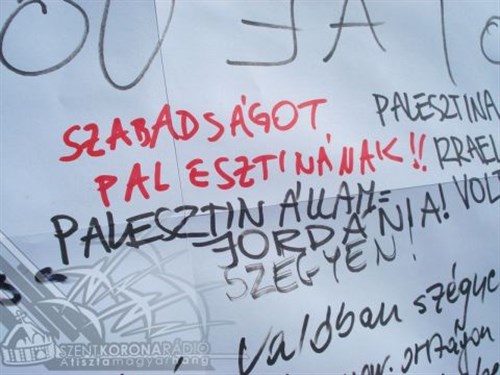 SZABADSÁGOT
PALESZTINÁNAK!!
PALESZTINA
RRAEL
VOLT
PALESZTIN ÁLLAM=
JORDÁNIA!
SZÉGYEN!
Valóban szégye
országon
SZENTKORONARÁDIÓ
Atisztamagyarhang